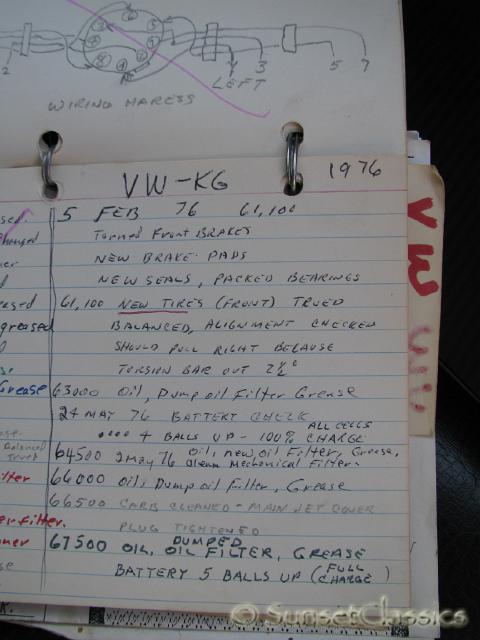 2
3
LEFT
5
7
WIRING HARESS
VW-KG
1976
5 FEB 76 61,100
Turned Front BRAKES
NEW BRAKE PADS
NEW SEALS, PACKED BEARINGS
61,100 NEW TIRES (FRONT) TRUED
BALANCED, ALIGNMENT CHECKED
SHOULD PULL RIGHT BECAUSE
TORSION BAR OUT 2½°
63000 Oil, Dump oil Filter Grease
24 MAY 76 BATTERY CHECK
4 BALLS UP - 100% ALL CELLS CHARGE
64500 2 may 76 Oil, new oil Filter, Grease,
Clean Mechanical Filter.
66000 oil, Dump oil Filter, Grease
66500 CARB CLEANED - MAIN JET COVER
PLUG TIGHTENED
67500 OIL, DUMPED OIL FILTER, GREASE
BATTERY 5 BALLS UP (FULL CHARGE)
greased
Grease
Balanced
Trued
VW
© SunsetClassics